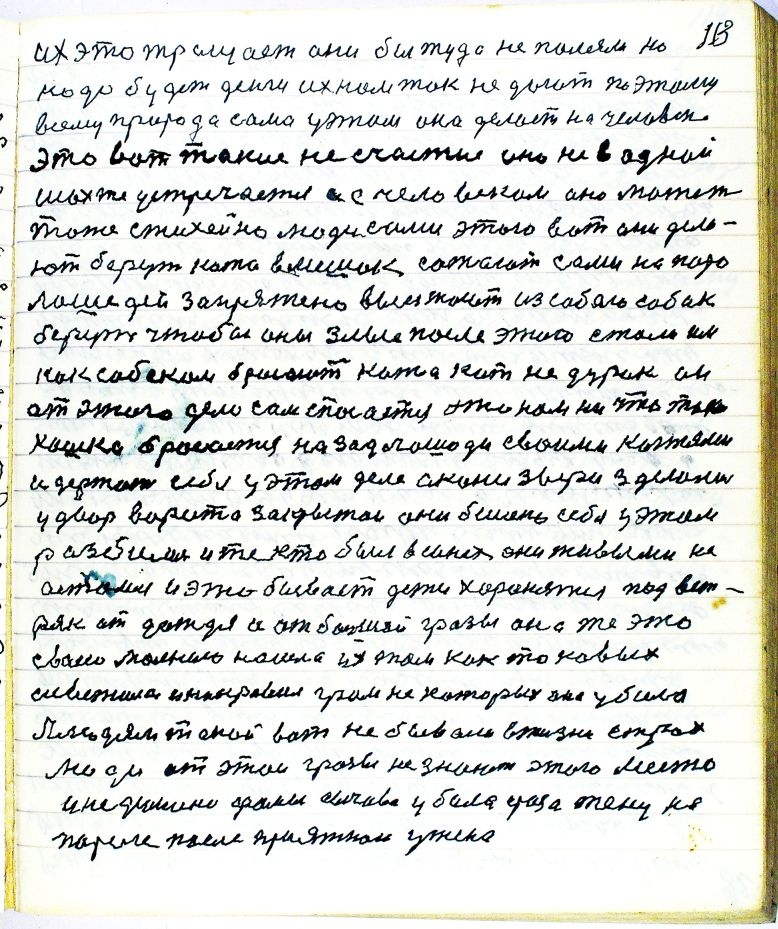 113
их это тралуает они бы туда не полезли но
надо будет деньги их нам так не дают поэтому
всему природа сама у этом она делает на человека
это вот такие не счастье оно не в одной
шахте устречается а с человеком оно может
тоже стихейно люди сами этого вот они дела-
ют берут кота в мешок сожают сами на пара
лошедей запряжено выезжают из собою собак
берут чтобы они злые после этого стали им
как собаком бросают кота кот не дурак он
от этого дело сам спасается это нам ни что то
кошка бросается на зад лошади своими коктями
и держат себя у этом деле а кони звери зделали
у двор варота закрытаи они бешено себя у этом
разбили и те кто был в санех они живыми не
астали и это бывает дети хоронятся под вет-
ряк от дождя и от большой грозы она же это
сваею молнию нашла их там как то новых
и направил гром не которых она убила
людям такой вот не бывала в жизни страх
люди от этой грозы не знают этого место
и убила фаза жену на
пароге после приятнаи ужена